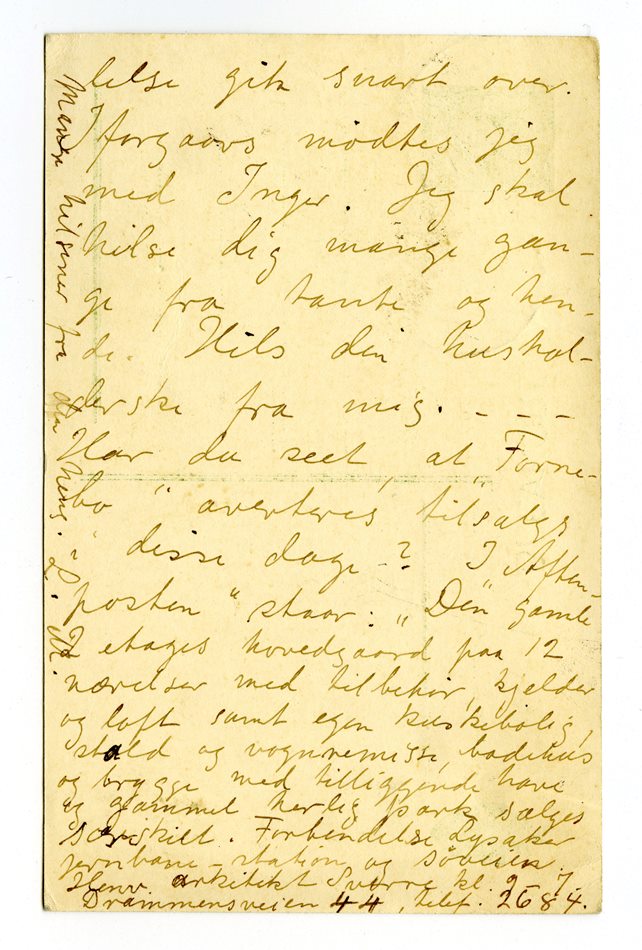 lelse gik snart over.
Iforgaars mødtes jeg
med Inger. Jeg skal
hilse dig mange gan-
ge fra tante og hen-
de. Hils din hushol-
derske fra mig. - - -
Har du seet, at „Forne-
bo" averteres tilsalgs
i disse dage-? I „Aften-
posten" staar: „Den gamle
2 etages hovedgaard paa 12
værelser med tilbehør, kjelder
og loft samt egen kuskebolig,
stald og vognremisse, badehus
og brygge med tilliggende have
og gammel herlig park sælges
særskilt. Forbindelse Lysaker
jernbane-station og søveien.
Henv. arkitekt Sverre kl. 2-7.
Drammensveien 44, telef. 2684.
Mange hilsener fra din heng.